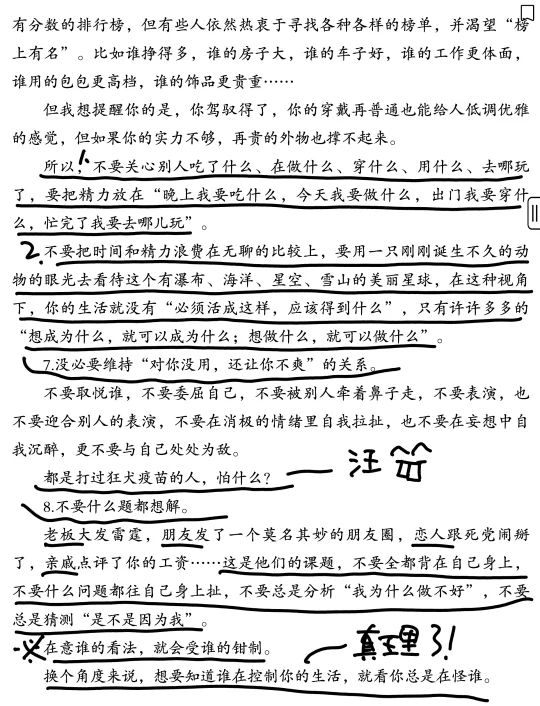 有分数的排行榜，但有些人依然热衷于寻找各种各样的榜单，并渴望“榜
上有名”。比如谁挣得多，谁的房子大，谁的车子好，谁的工作更体面，
谁用的包包更高档，谁的饰品更贵重……
但我想提醒你的是，你驾驭得了，你的穿戴再普通也能给人低调优雅
的感觉，但如果你的实力不够，再贵的外物也撑不起来。
所以，1、不要关心别人吃了什么、在做什么、穿什么、用什么、去哪玩
了，要把精力放在“晚上我要吃什么，今天我要做什么，出门我要穿什
么，忙完了我要去哪儿玩”。
2.不要把时间和精力浪费在无聊的比较上，要用一只刚刚诞生不久的动
物的眼光去看待这个有瀑布、海洋、星空、雪山的美丽星球，在这种视角
下，你的生活就没有“必须活成这样，应该得到什么”，只有许许多多的
“想成为什么，就可以成为什么；想做什么，就可以做什么”。
7.没必要维持“对你没用，还让你不爽”的关系。
不要取悦谁，不要委屈自己，不要被别人牵着鼻子走，不要表演，也
不要迎合别人的表演，不要在消极的情绪里自我拉扯，也不要在妄想中自
我沉醉，更不要与自己处处为敌。
都是打过狂犬疫苗的人，怕什么？
汪
8.不要什么题都想解。
老板大发雷霆，朋友发了一个莫名其妙的朋友圈，恋人跟死党闹掰
了，亲戚点评了你的工资……这是他们的课题，不要全都背在自己身上，
不要什么问题都往自己身上扯，不要总是分析“我为什么做不好”，不要
总是猜测“是不是因为我”。
※在意谁的看法，就会受谁的钳制。
真理了！
换个角度来说，想要知道谁在控制你的生活，就看你总是在怪谁。